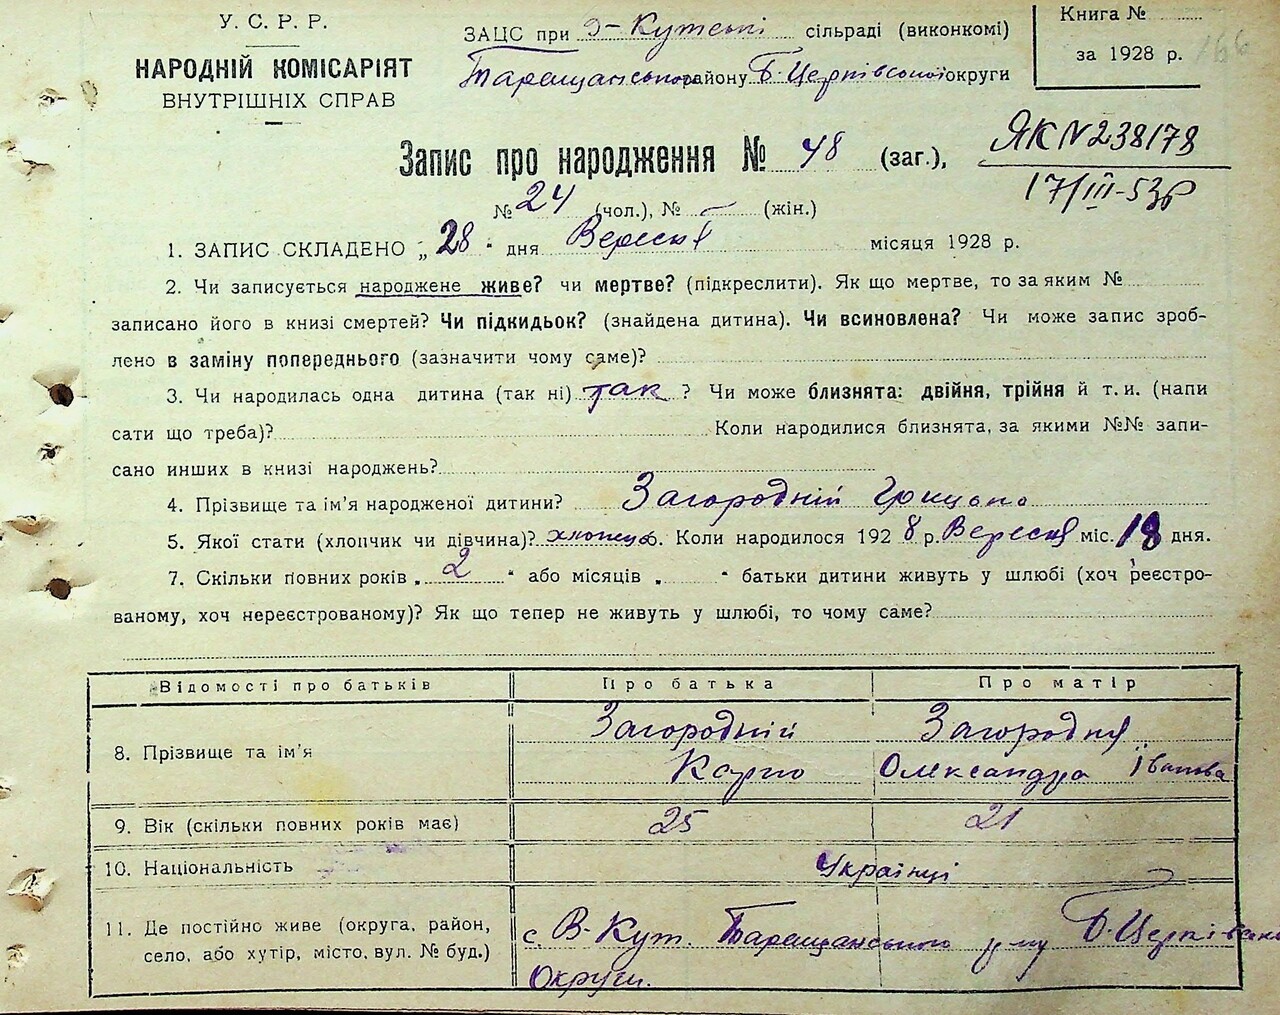 У. С. Р. Р.
НАРОДНІЙ КОМІСАРІЯТ
ВНУТРІШНІХ СПРАВ
ЗАЦС при Кутській сільраді (виконкомі)
Таращанського району Б-Церківської округи
Книга №
за 1928 р. 166
Запис про народження № 48 (заг.),
ЯК N 238178
17/III-53р
№ 24 (чол.), № — (жін.)
1. ЗАПИС СКЛАДЕНО „28" дня Вересня місяця 1928 р.
2. Чи записується народжене живе? чи мертве? (підкреслити). Як що мертве, то за яким №
записано його в книзі смертей? Чи підкидьок? (знайдена дитина). Чи всиновлена? Чи може запис зроб-
лено в заміну попереднього (зазначити чому саме)?
3. Чи народилась одна дитина (так ні) так ? Чи може близнята: двійня, трійня й т. и. (напи
сати що треба)? Коли народилися близнята, за якими №№ запи-
сано инших в книзі народжень?
4. Прізвище та ім'я народженої дитини? Загородній Грицько
5. Якої статі (хлопчик чи дівчина)? хлопець. Коли народилося 1928 р. Вересня міс. 18 дня.
7. Скільки повних років „2" або місяців „ " батьки дитини живуть у шлюбі (хоч реєстро-
ваному, хоч нереєстрованому)? Як що тепер не живуть у шлюбі, то чому саме?
Відомості про батьків Про батька Про матір
8. Прізвище та ім'я
Загородній Загородня
Карпо Олександра Іванова
9. Вік (скільки повних років має) 25 21
10. Національність Українці
11. Де постійно живе (округа, район,
село, або хутір, місто, вул. № буд.)
с. В-Кут. Таращанського р-ну Б. Церківської
Округи.